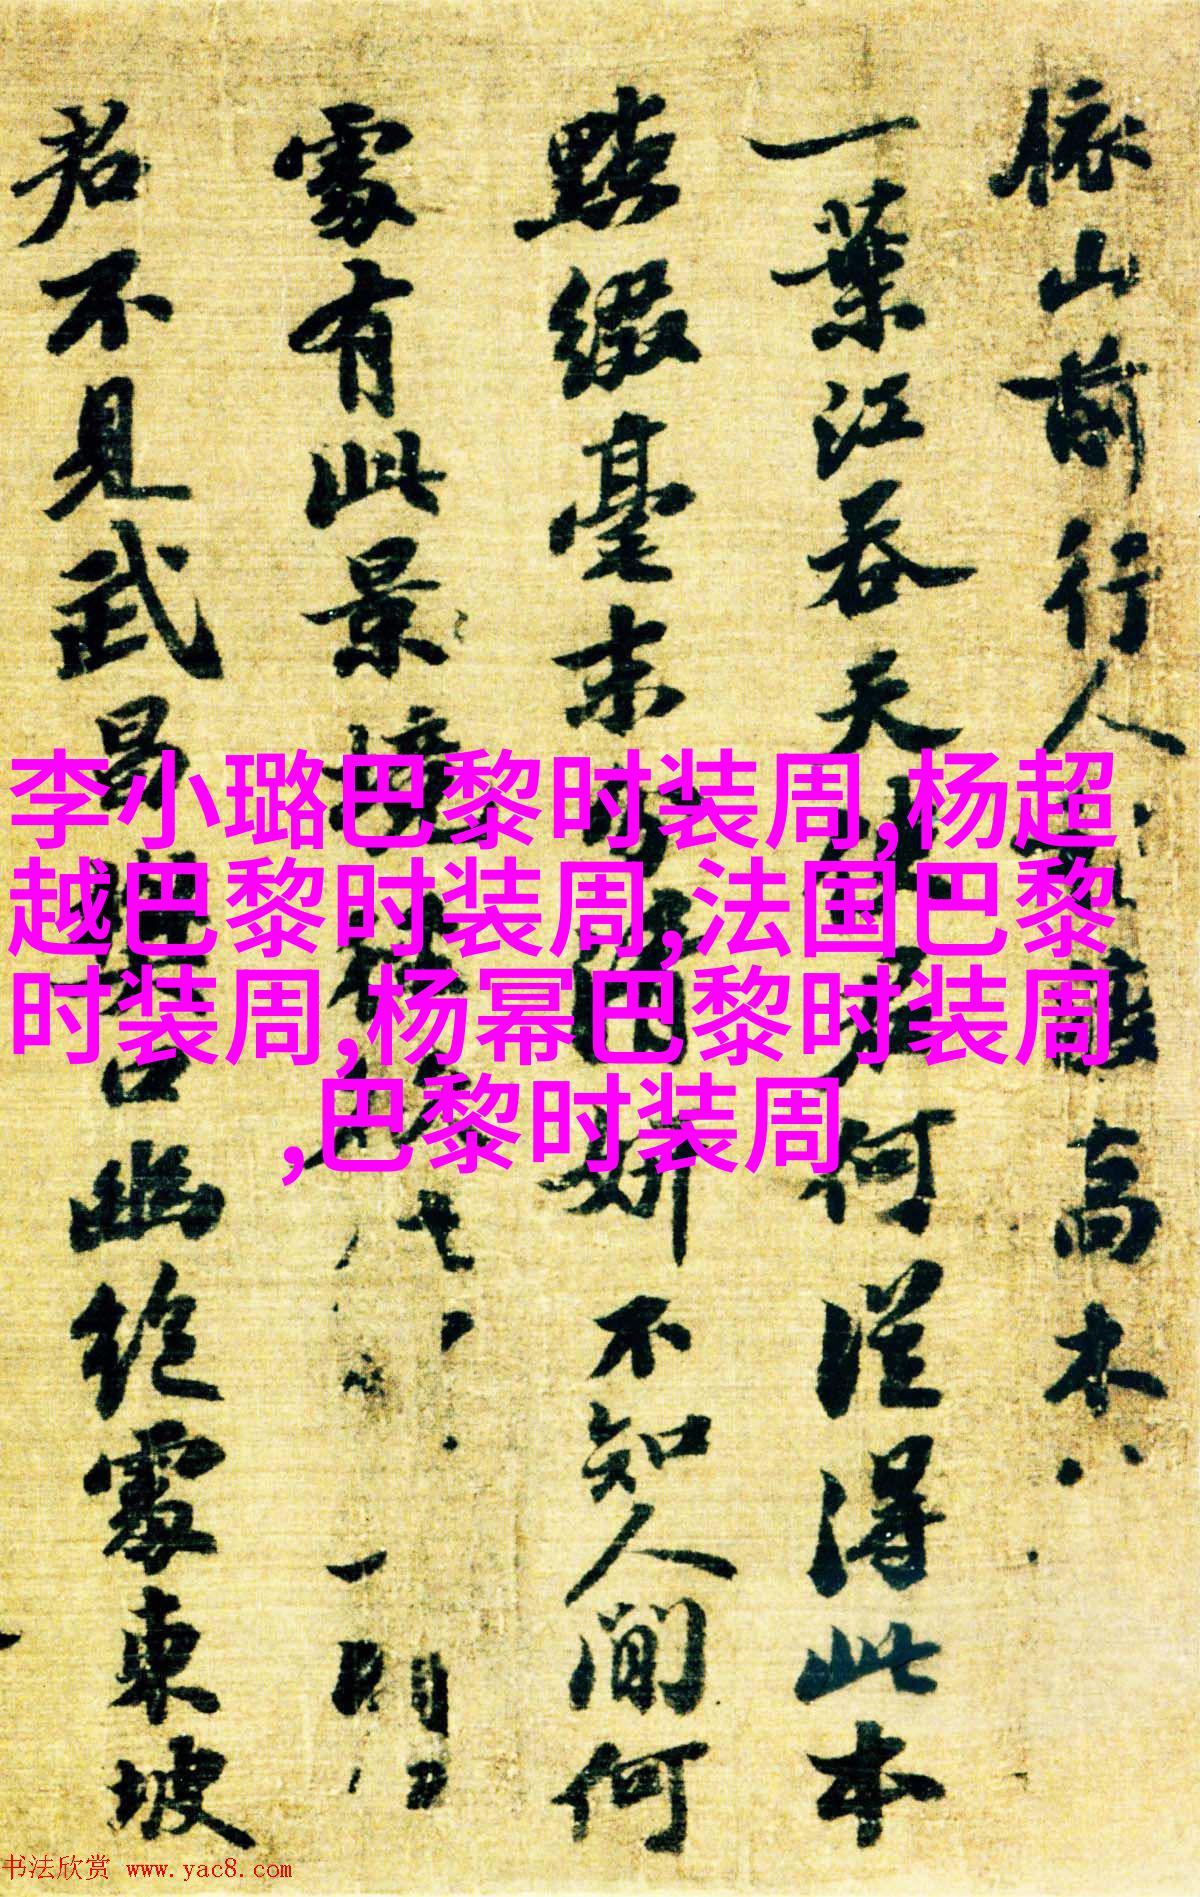 依山前行人
高木
一葉江吞天
何從得此本
點綴毫末
妍不知人間何
處有此景
君不見武昌
幽絕處東坡
李小璐巴黎时装周,杨超
越巴黎时装周,法国巴黎
时装周,杨幂巴黎时装周
,巴黎时装周
书法欣赏 www.yac8.com